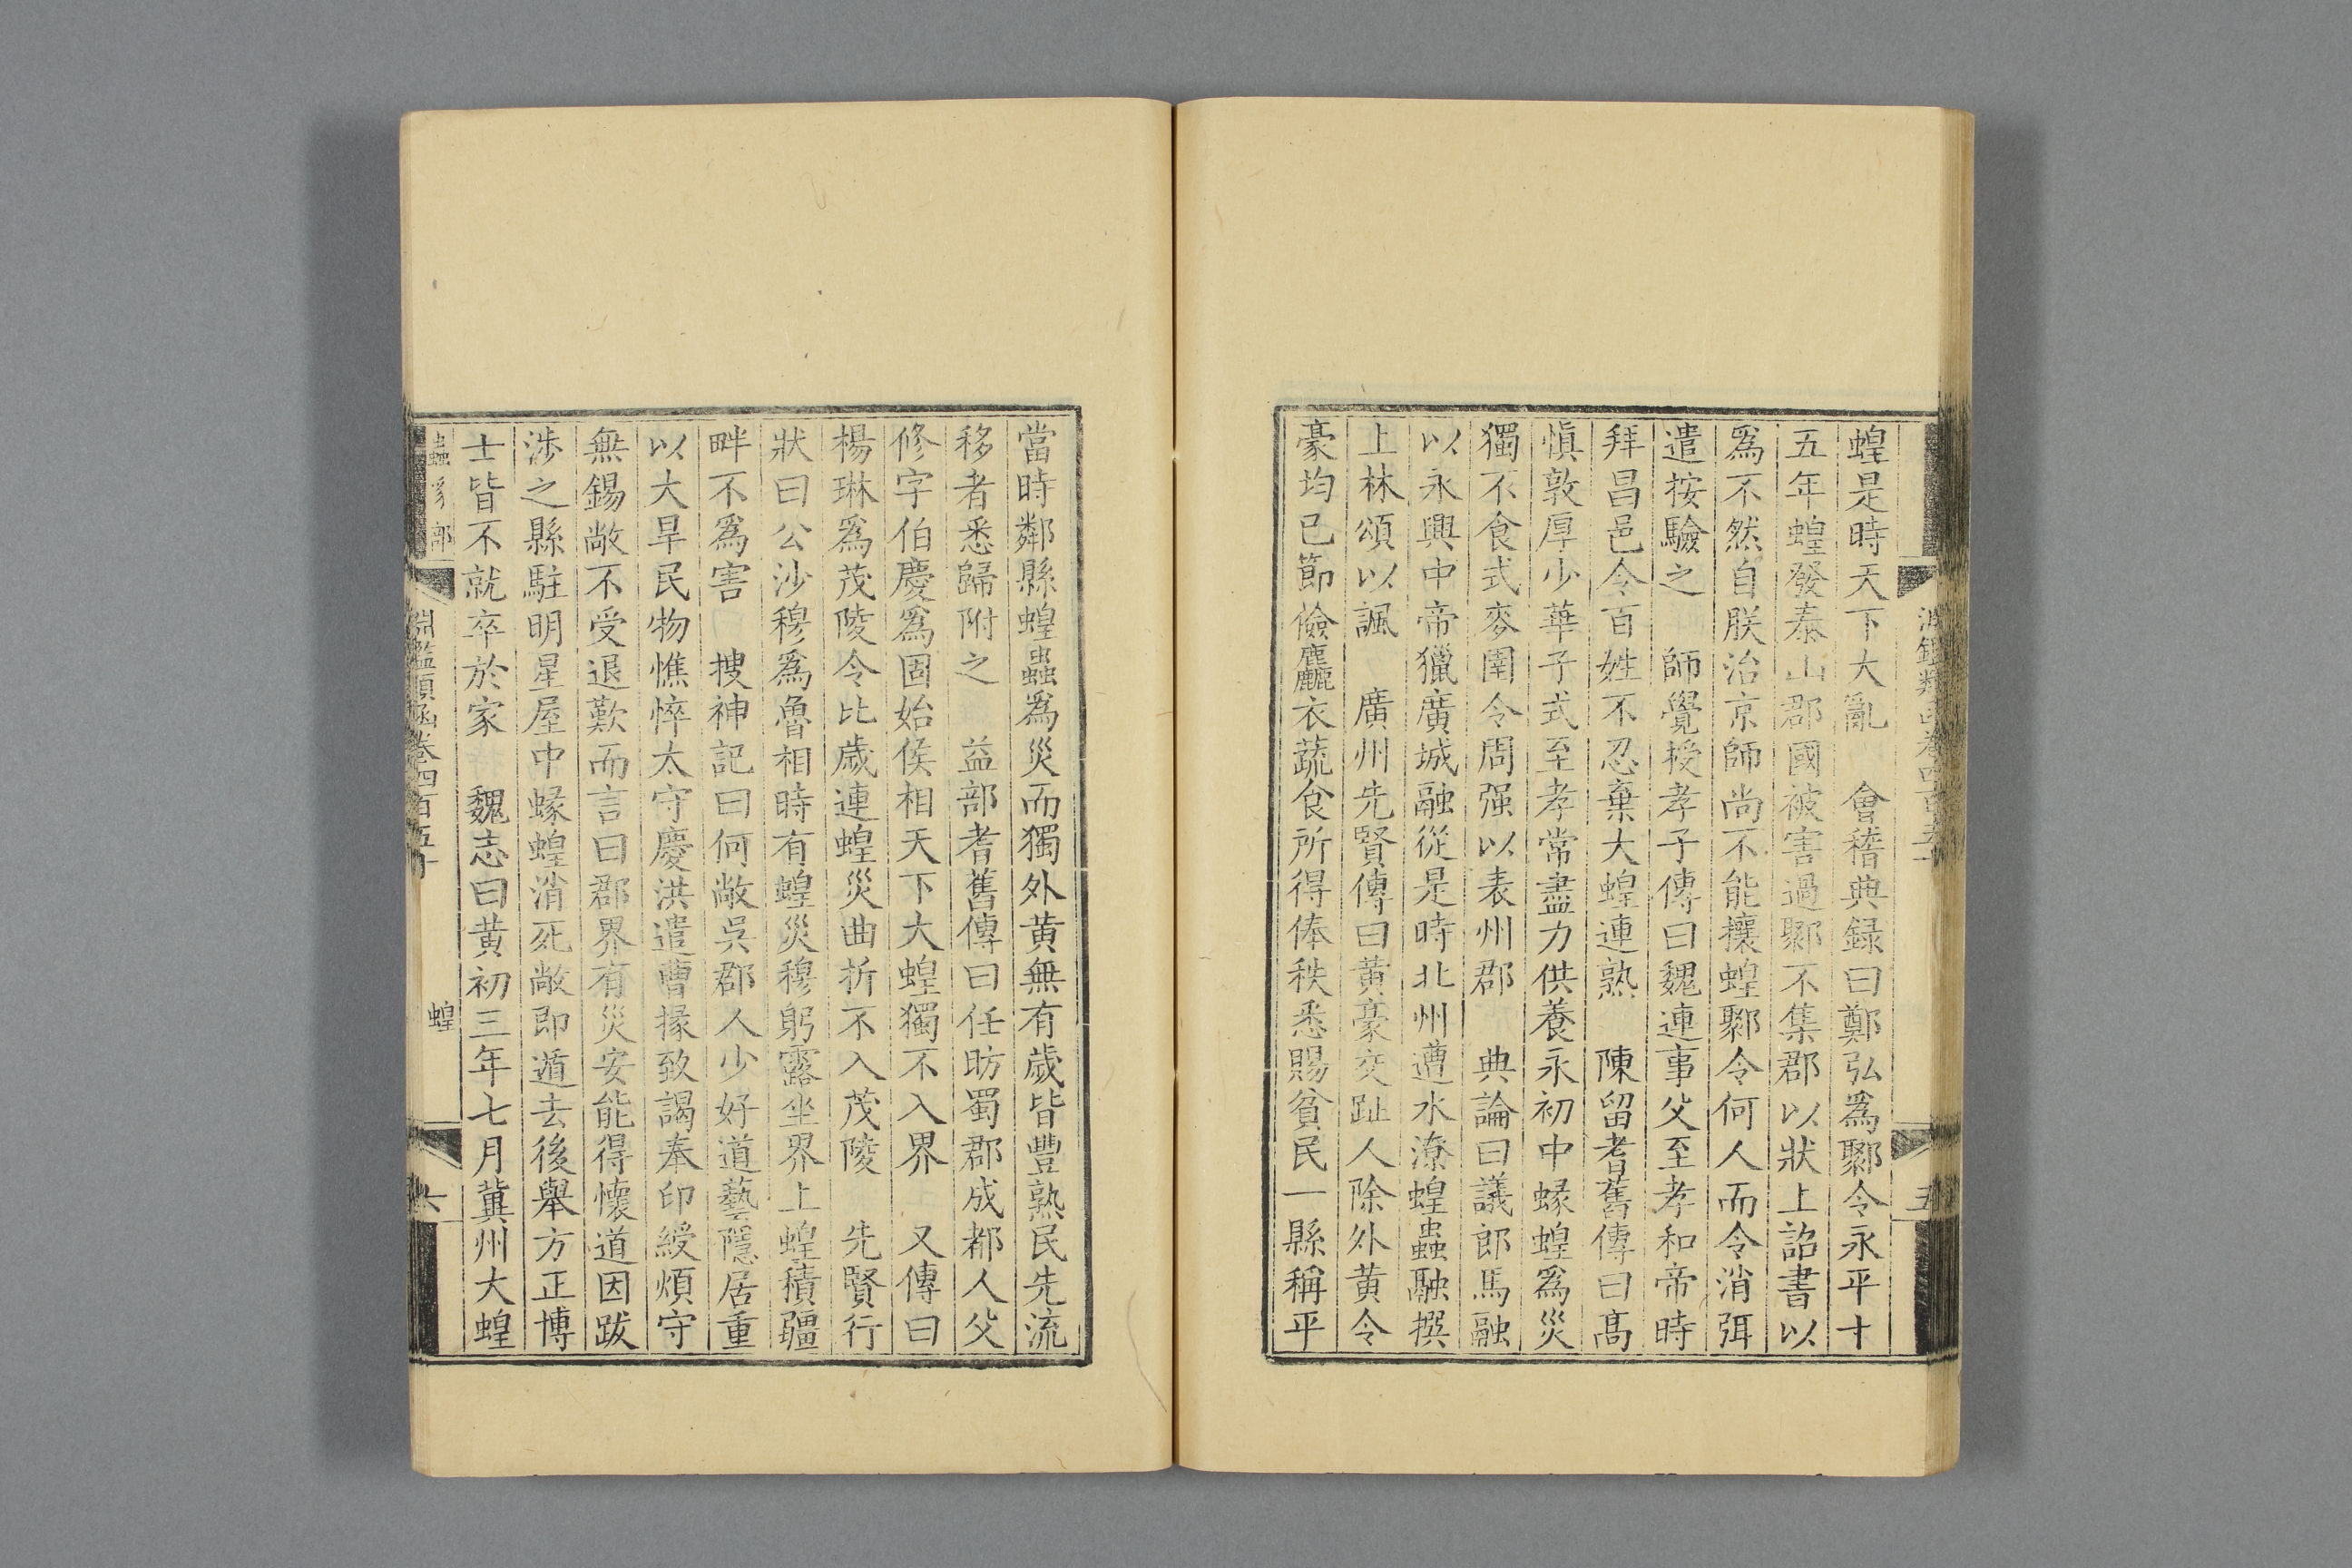 蝗是時天下大亂　會稽典録曰鄭弘爲鄹令永平十
五年蝗發泰山郡國被害過鄹不集郡以狀上詔書以
爲不然自朕治京師尚不能攘蝗鄹令何人而令消弭
遣按驗之　師覺授孝子傳曰魏連事父至孝和帝時
拜昌邑令百姓不忍棄大蝗連熟　陳留耆舊傳曰髙
慎敦厚少華子式至孝常盡力供養永初中蝝蝗爲災
獨不食式麥圉令周强以表州郡　典論曰議郎馬融
以永興中帝獵廣城融從是時北州遭水潦蝗蟲融撰
上林頌以諷　廣州先賢傳曰黄豪交趾人除外黄令
豪均已節儉麤衣蔬食所得俸秩悉賜貧民一縣稱平
淵鑑類函卷四百五十
五
當時鄰縣蝗蟲爲災而獨外黄無有歲皆豐熟民先流
移者悉歸附之　益部耆舊傳曰任昉蜀郡成都人父
修字伯慶爲固始侯相天下大蝗獨不入界　又傳曰
楊琳爲茂陵令比歲連蝗災曲折不入茂陵　先賢行
狀曰公沙穆爲魯相時有蝗災穆躬露坐界上蝗積疆
畔不爲害　搜神記曰何敞吳郡人少好道藝隱居重
以大旱民物憔悴太守慶洪遣曹掾致謁奉印綬煩守
無錫敞不受退歎而言曰郡界有災安能得懷道因跋
涉之縣駐明星屋中蝝蝗消死敞即遁去後舉方正博
士皆不就卒於家　魏志曰黄初三年七月冀州大蝗
蟲豸部
淵鑑類函卷四百五十
蝗
六